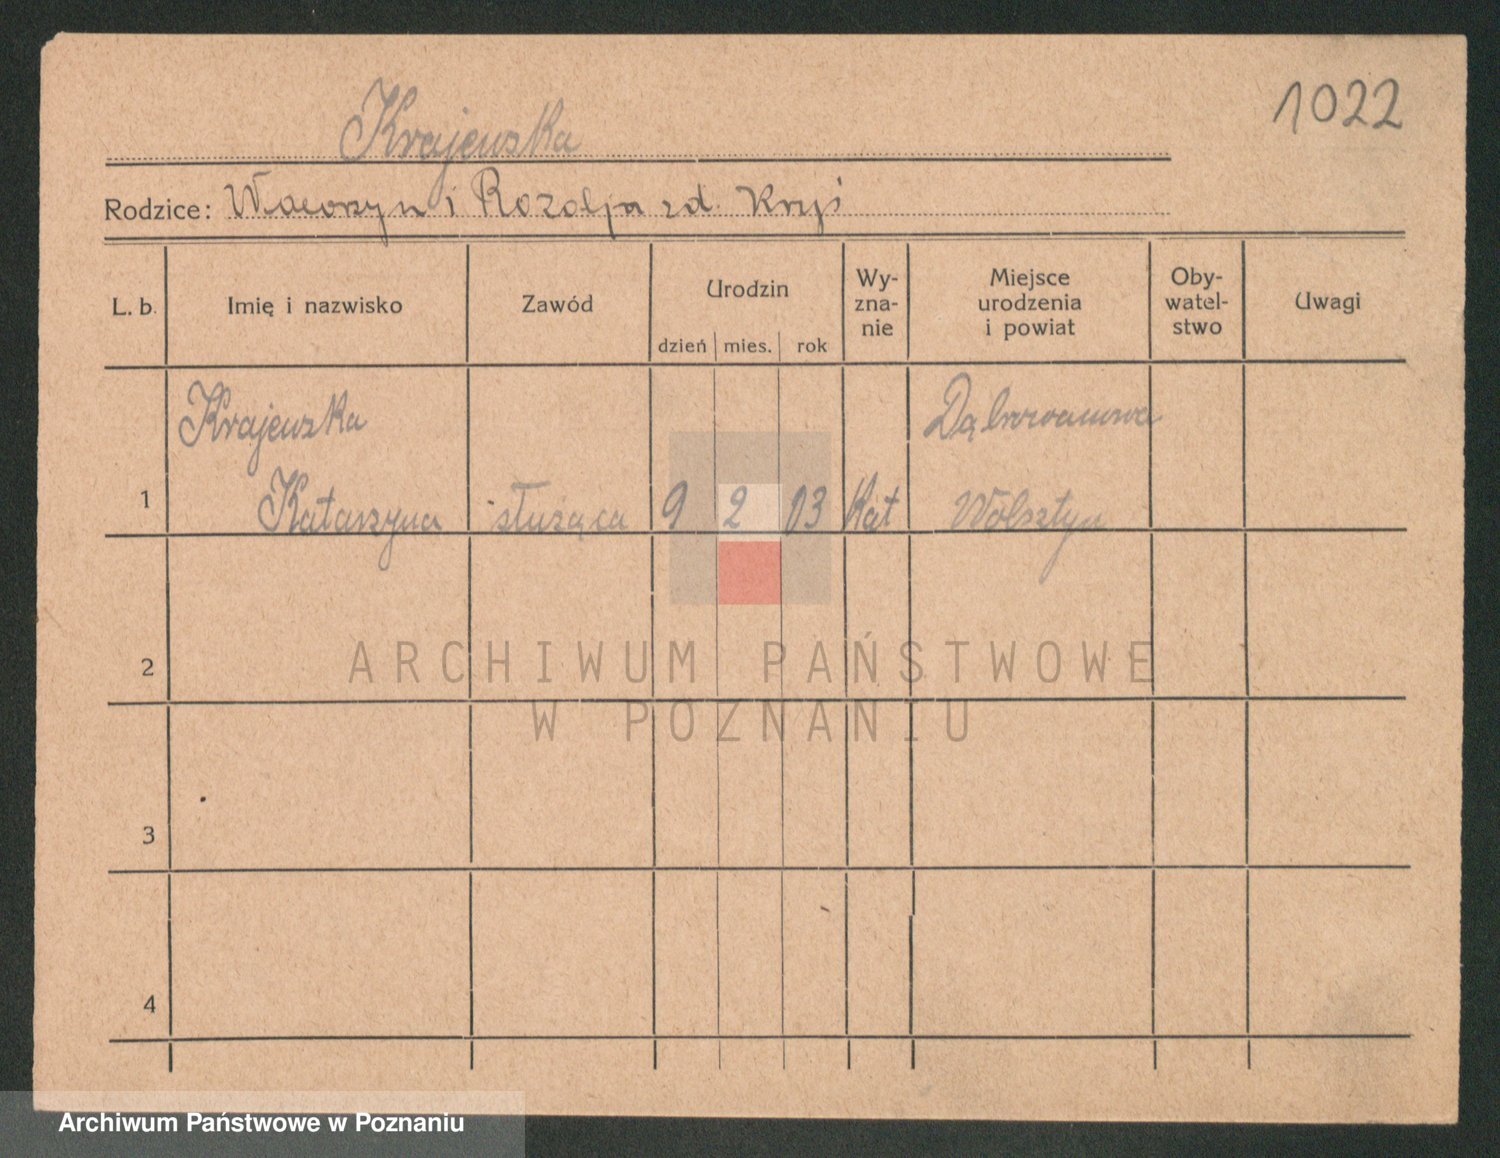 1022
Krajewska
Rodzice: Wawrzyn i Rozalja zd. Kryś
L. b. Imię i nazwisko Zawód Urodzin Wy-zna-nie Miejsce urodzenia i powiat Oby-watel-stwo Uwagi
dzień mies. rok
Krajewska
1 Katarzyna służąca 9 2 03 Kat Wolsztyn
2
ARCHIWUM PAŃSTWOWE
W POZNANIU
3
4
Archiwum Państwowe w Poznaniu